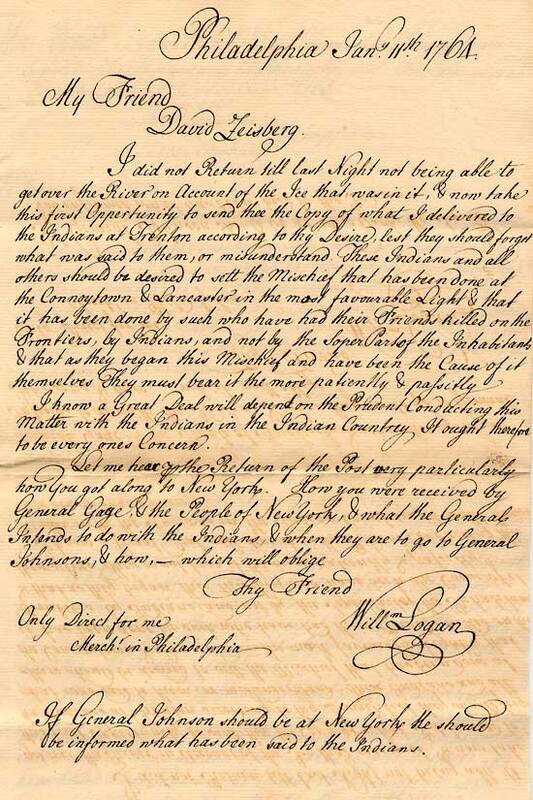 Philadelphia Jany 11th 1764.
My Friend
David Zeisberg.
I did not Return till last Night not being able to
get over the River on Account of the Ice that was in it, & now take
this first Opportunity to send thee the Copy of what I delivered to
the Indians at Trenton according to thy Desire, lest they should forget
what was said to them, or misunderstand. These Indians and all
others should be desired to sett the Mischief that has been done at
the Connoytown & Lancaster in the most favourable Light & that
it has been done by such who have had their Friends killed on the
Frontiers, by Indians, and not by the Soper Part of the Inhabitants
& that as they began this Mischief and have been the Cause of it
themselves They must bear it the more patiently &
I know a Great Deal will depend on the Prudent Conducting this
Matter with the Indians in the Indian Countrey, It ought therefore
to be every ones Concern.
Let me hear the Return of the Post very particularly
how You got along to New York. How you were received by
General Gage, & the People of New York, & what the General
Intends to do with the Indians, & when they are to go to General
Johnsons, & how, — which will oblige
Thy Friend
Willm Logan
Only Direct for me
Mercht. in Philadelphia
If General Johnson should be at New York He should
be informed what has been said to the Indians.